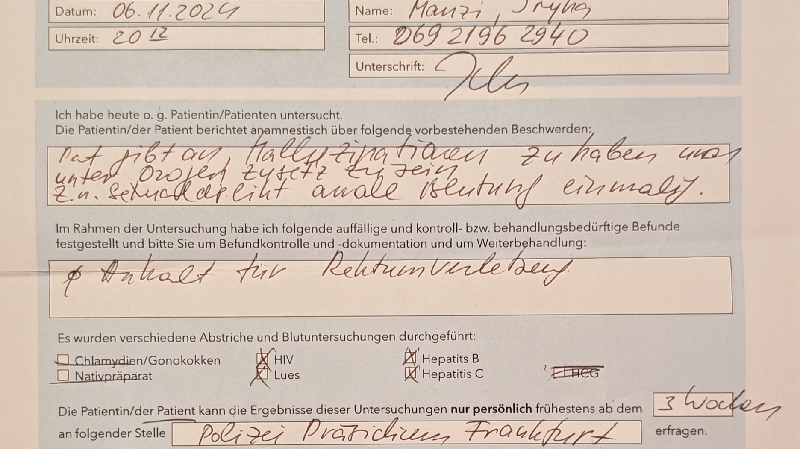 Datum: 06.11.2024
Name: Manzi,
Uhrzeit: 20 12
Tel.: 069 2196 2940
Unterschrift:
Ich habe heute o. g. Patientin/Patienten untersucht.
Die Patientin/der Patient berichtet anamnestisch über folgende vorbestehenden Beschwerden:
Pat gibt an, Halluzinationen zu haben und
unter Drogen zu sein
Z.n. Sexualdelikt anale Blutung einmalig.
Im Rahmen der Untersuchung habe ich folgende auffällige und kontroll- bzw. behandlungsbedürftige Befunde
festgestellt und bitte Sie um Befundkontrolle und -dokumentation und um Weiterbehandlung:
Anhalt für Rektumverletzung
Es wurden verschiedene Abstriche und Blutuntersuchungen durchgeführt:
Chlamydien/Gonokokken
HIV
Hepatitis B
Nativpräparat
Lues
Hepatitis C
HCG
Die Patientin/der Patient kann die Ergebnisse dieser Untersuchungen nur persönlich frühestens ab dem 3 Wochen
an folgender Stelle Polizei Präsidium Frankfurt erfragen.